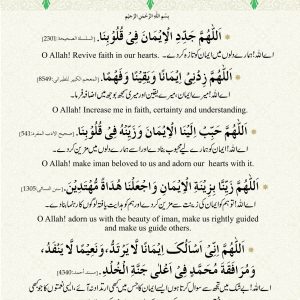 بِسْمِ اللهِ الرَّحْمٰنِ الرَّحِيْمِ
اَللّٰهُمَّ جَدِّدِ الْاِيْمَانَ فِيْ قُلُوْبِنَا. [السلسلة الصحيحة:2301]
اے اللہ! ہمارے دلوں میں ایمان کو تازہ کر دے۔ O Allah! Revive faith in our hearts.
اَللّٰهُمَّ زِدْنِيْ اِيْمَانًا وَيَقِيْنًا وَفَهْمًا. [المعجم الكبير للطبرانى:8549]
اے اللہ! میرے ایمان، میرے یقین اور میری سمجھ بوجھ میں اضافہ فرما۔
O Allah! Increase me in faith, certainty and understanding.
اَللّٰهُمَّ حَبِّبْ اِلَيْنَا الْاِيْمَانَ وَزَيِّنْهُ فِيْ قُلُوْبِنَا. [صحيح الادب المفرد:541]
اے اللہ! ایمان کو ہمارے لئے محبوب بنا دے اور اسے ہمارے دلوں میں مزین کر دے۔
O Allah! make iman beloved to us and adorn our hearts with it.
اَللّٰهُمَّ زَيِّنَّا بِزِيْنَةِ الْاِيْمَانِ وَاجْعَلْنَا هُدَاةً مُهْتَدِيْنَ. [سنن النسائى:1305]
اے اللہ! ہم کو ایمان کی زینت سے مزین کر دے اور ہم کو ہدایت یافتہ لوگوں کا رہنما بنا دے۔
O Allah! adorn us with the beauty of iman, make us rightly guided
and make us guide others.
اَللّٰهُمَّ اِنِّيْ اَسْاَلُكَ اِيْمَانًا لَّا يَرْتَدُّ، وَنَعِيْمًا لَّا يَنْفَدُ،
وَمُرَافَقَةَ مُحَمَّدٍ فِيْ اَعْلٰى جَنَّةِ الْخُلْدِ. [مسند احمد:4340]
اے اللہ! بے شک میں تجھ سے سوال کرتا ہوں ایسے ایمان کا جس میں کبھی ارتداد نہ آئے، ایسی نعمتوں کا جو کبھی